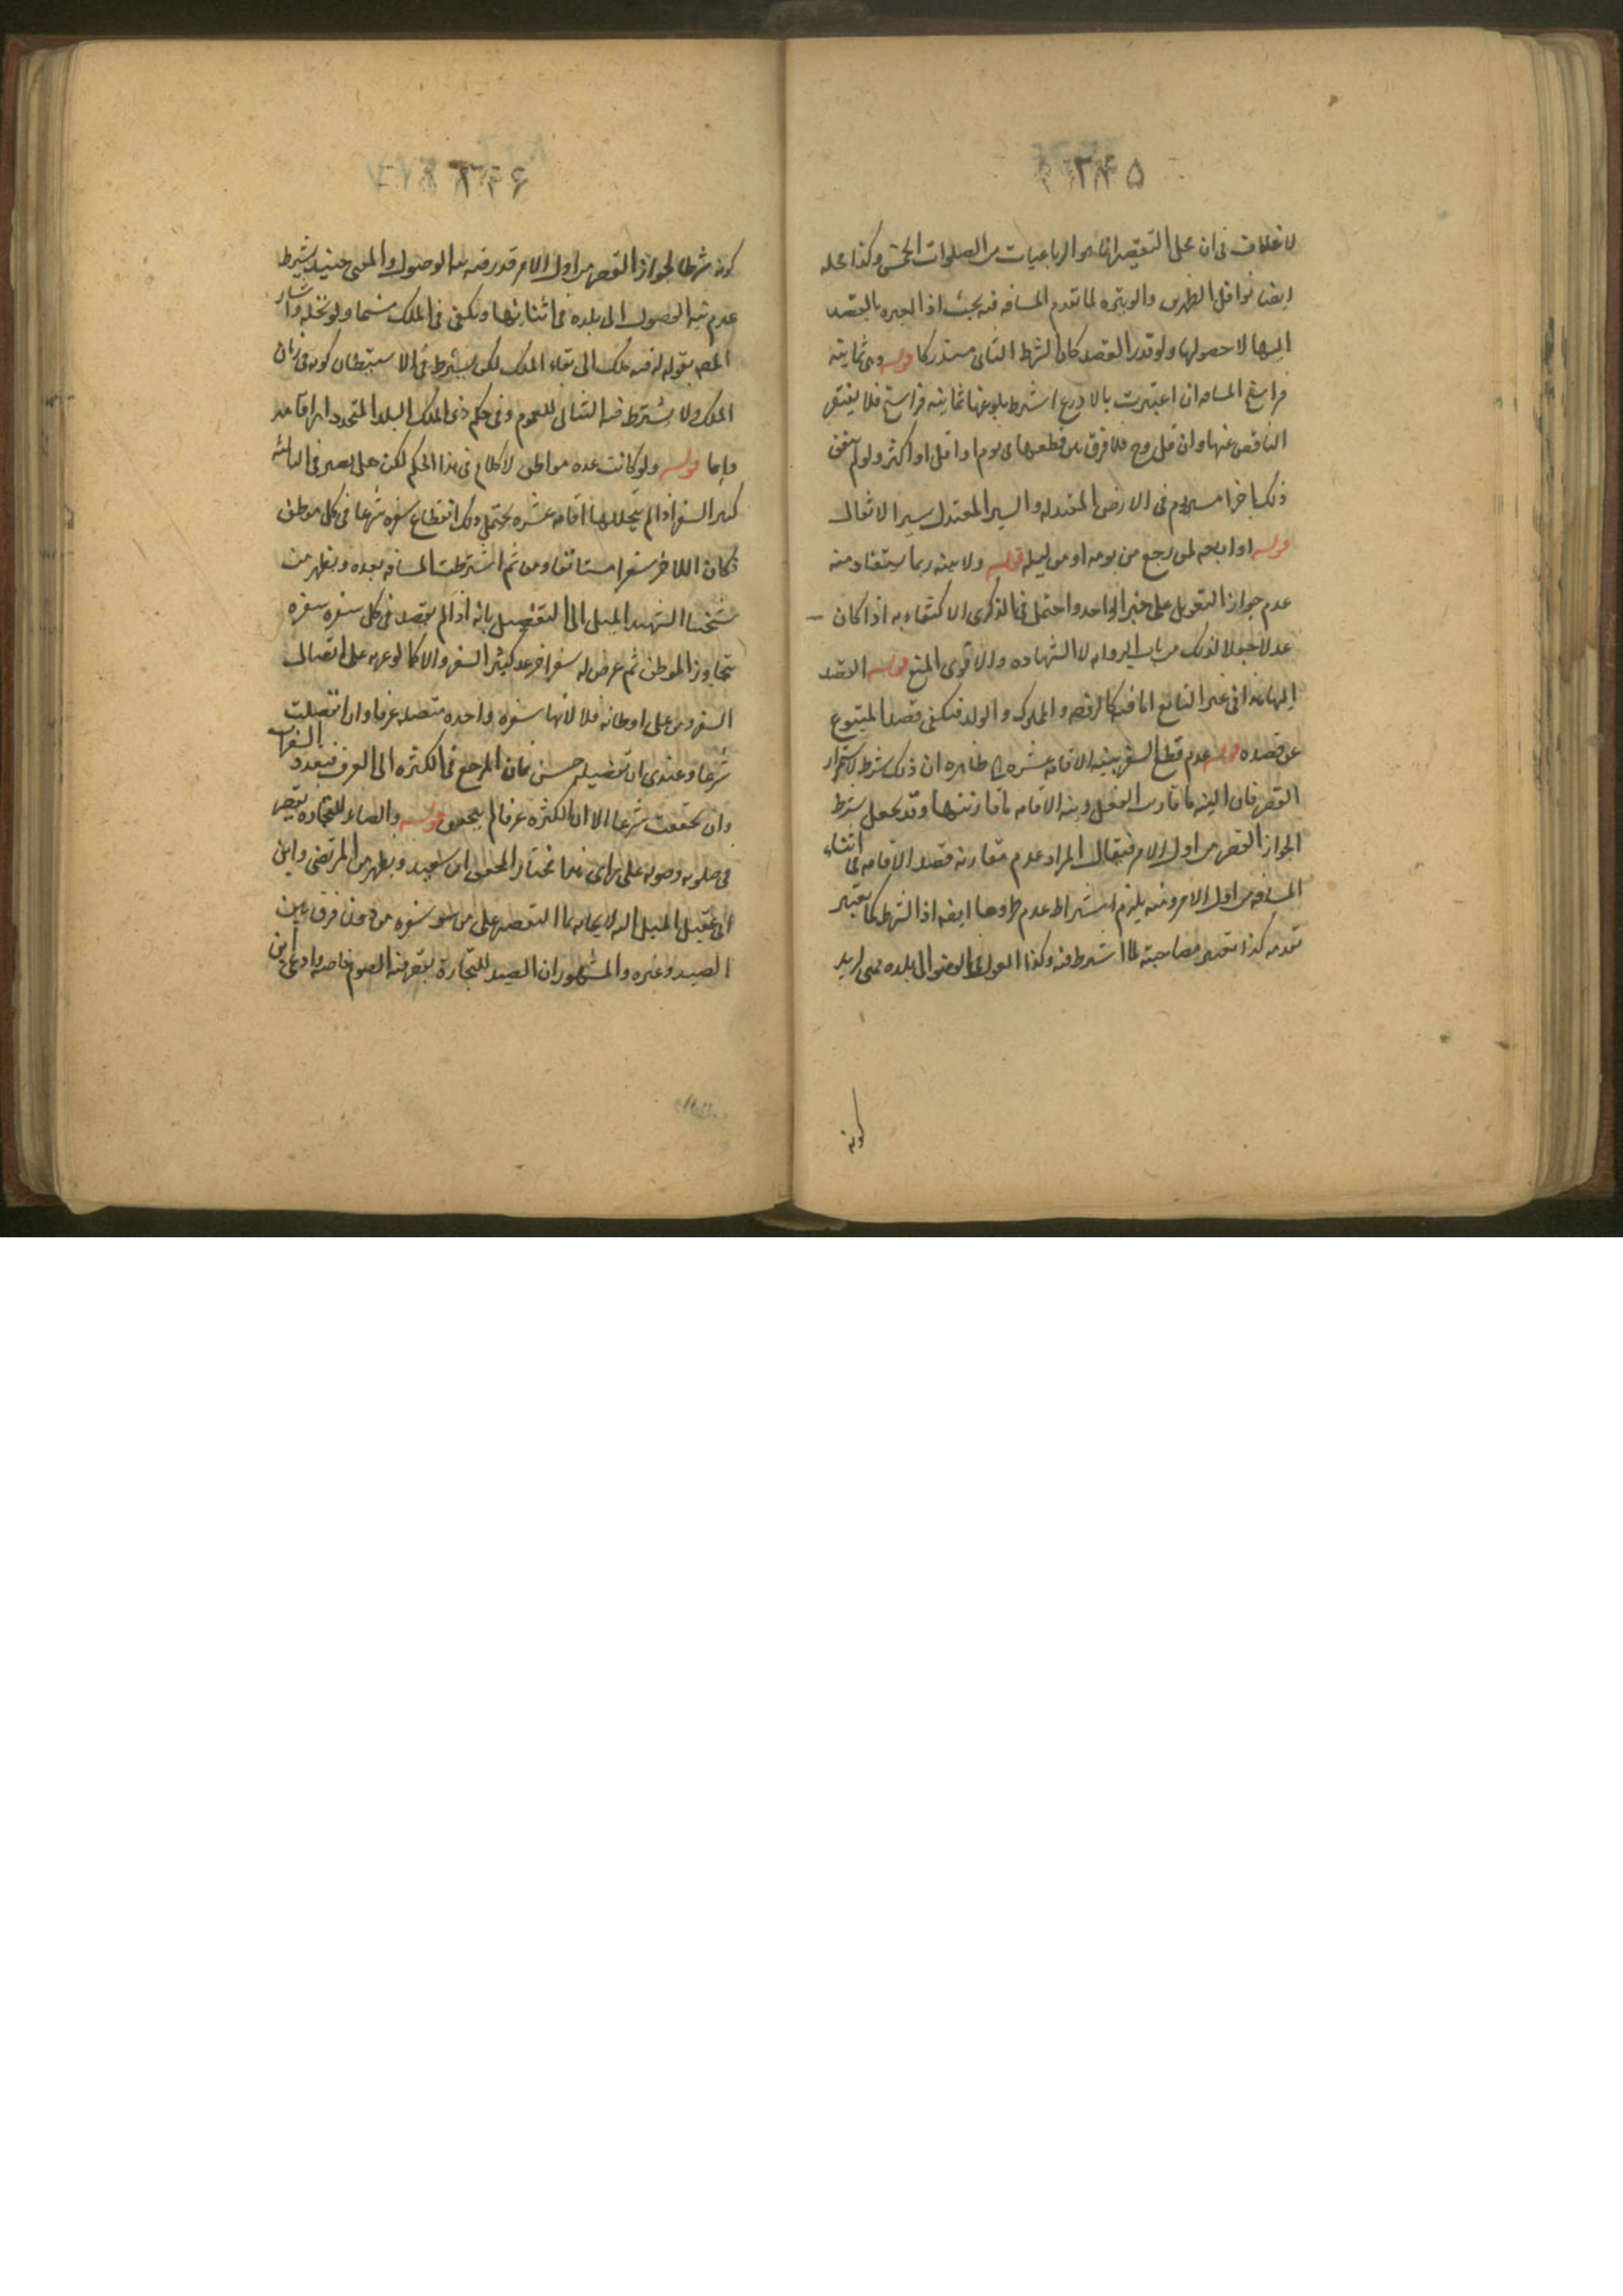 لا خلاف فى ان محل التقصير انما هو الرباعيات من الصلوات الخمس وكذا محله
ايضا نوافل الظهرين والوتيرة لما تقدم المسافه فيه بحث اذ العبره بالقصد
اليها لا حصولها ولو قدر القصد كان الشرط الثانى مستدركا قوله وهى ثمانيه
فراسخ المسافه ان اعتبرت بالاذرع اشترط بلوغها ثمانيه فراسخ فلا يغتفر
الناقص عنها وان قل وح فلا فرق بين قطعها فى يوم او اقل او اكثر ولو لم يتفق
ذلك اخرا مسير يوم فى الارض المعتدله والسير المعتدل سير الاثقال
قوله او اربعه لمن رجع من يومه او من ليله قوله ولا بينه ربما يستفاد منه
عدم جواز التعويل على خبر الواحد واحتمل فى الذكرى الاكتفاء به اذا كان
عدلا جعلا لذلك من باب الروايه لا الشهاده والاقوى المنع قوله القصد
اليها هذا فى غير التابع اما فيه كالرقيق والمملوك والولد فيكفى قصد المتبوع
عن قصده قوله عدم قطع السفر بنيه الاقامه عشره الخ ظاهره ان ذلك شرط لاستمرار
القصر فان النيه ما قارنت الفعل ونيه الاقامه ما قارنتها وقد يجعل شرط
الجواز القصر من اول الامر فيقال المراد عدم مقارنه قصد الاقامه فى اثناء
المسافه من اول الامر ومنه يلزم اشتراط عدم طروها ايضا اذ الشرط كما يعتبر
تقدمه كذا تعتبر مصاحبته لما اشترط فيه وكذا القول فى الوصول الى بلده بمعنى اريد
كونه
كونه شرطا لجواز القصر من اول الامر قدر فيه نيه الوصول والمعنى حينئذ يشترط
عدم نيه الوصول الى بلده فى اثنائها ويكفى فى الملك مسماه ولو نخله واشار
المصه بقوله له فيه ملك الى بقاء الملك لكن يشترط فى الاستيطان كونه فى زمان
الملك ولا يشترط فيه التتالى للعموم وفى حكم ذى الملك البلد المتخذ دار اقامه
دايما قوله ولو كانت عده مواطن لا كلام فى هذا الحكم لكن هل يصير فى الثالثه
كثير السفر اذا لم يتخللها اقامه عشره يحتمل ذلك لانقطاع سفره شرعا فى كل موطن
فكان اللاخر سفرا مستانفا ومن ثم اشترطت المسافه بعده ويظهر من
شيخنا الشهيد الميل الى التفصيل بانه اذا لم يقصد فى كل سفره سفره
تجاوز الموطن ثم عرض له سفر اخر عد كثير السفر والا كما لو عزم على اتصال
السفر ومر على اوطانه فلا لانها سفره واحده متصله عرفا وان انفصلت
شرعا وعندى ان تفصيله حسن فان المرجع فى الكثره الى العرف فتعدد السفرات
وان تحققت شرعا الا ان الكثره عرفا لم يتحقق قوله والصايد للتجاره يقصر
فى صلوته وصومه على راى هذا مختار المحقق ابن سعيد ويظهر من المرتضى وابن
ابى عقيل الميل اليه لايجابهما التقصير على من سفره من دون فرق بين
الصيد وغيره والمشهور ان الصيد للتجارة يقصر فيه الصوم خاصه وادعى ابن